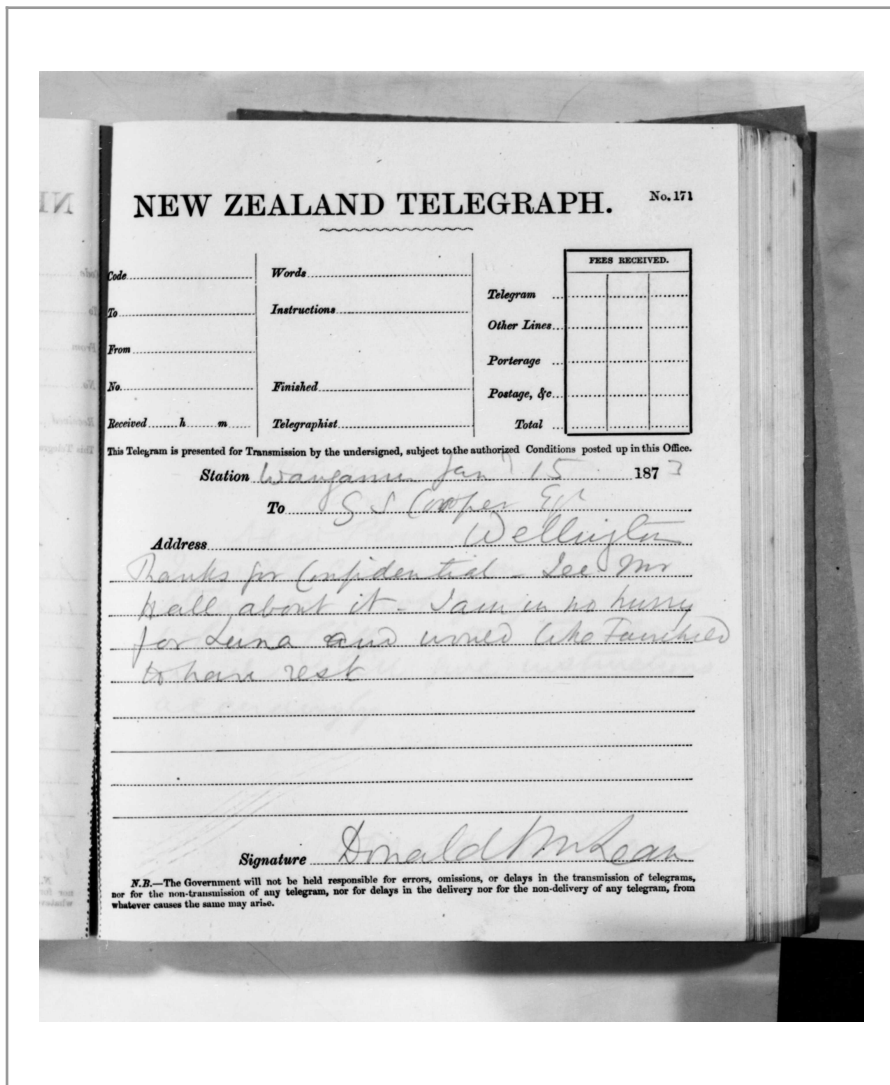 NEW ZEALAND TELEGRAPH.
No. 171
Code
To
From
No.
Received h m
Words
Instructions
Finished
Telegraphist
FEES RECEIVED.
Telegram
Other Lines
Porterage
Postage, &c
Total
This Telegram is presented for Transmission by the undersigned, subject to the authorized Conditions posted up in this Office.
Station Wanganui Jany 15 1873
To G S Cooper Esqr
Address Wellington
Thanks for Confidential - See Mr
Hall about it - I am in no hurry
for Luna and would like Fairchild
to have rest
Signature Donald McLean
N.B.—The Government will not be held responsible for errors, omissions, or delays in the transmission of telegrams,
nor for the non-transmission of any telegram, nor for delays in the delivery nor for the non-delivery of any telegram, from
whatever causes the same may arise.